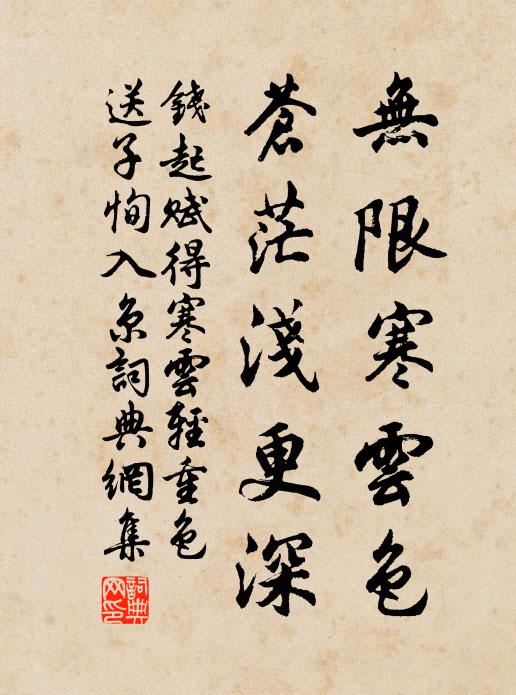 無限寒雲色
蒼茫淺更深
錢起賦得寒雲輕重色
送子恂入京詞典網集
詞典
网印